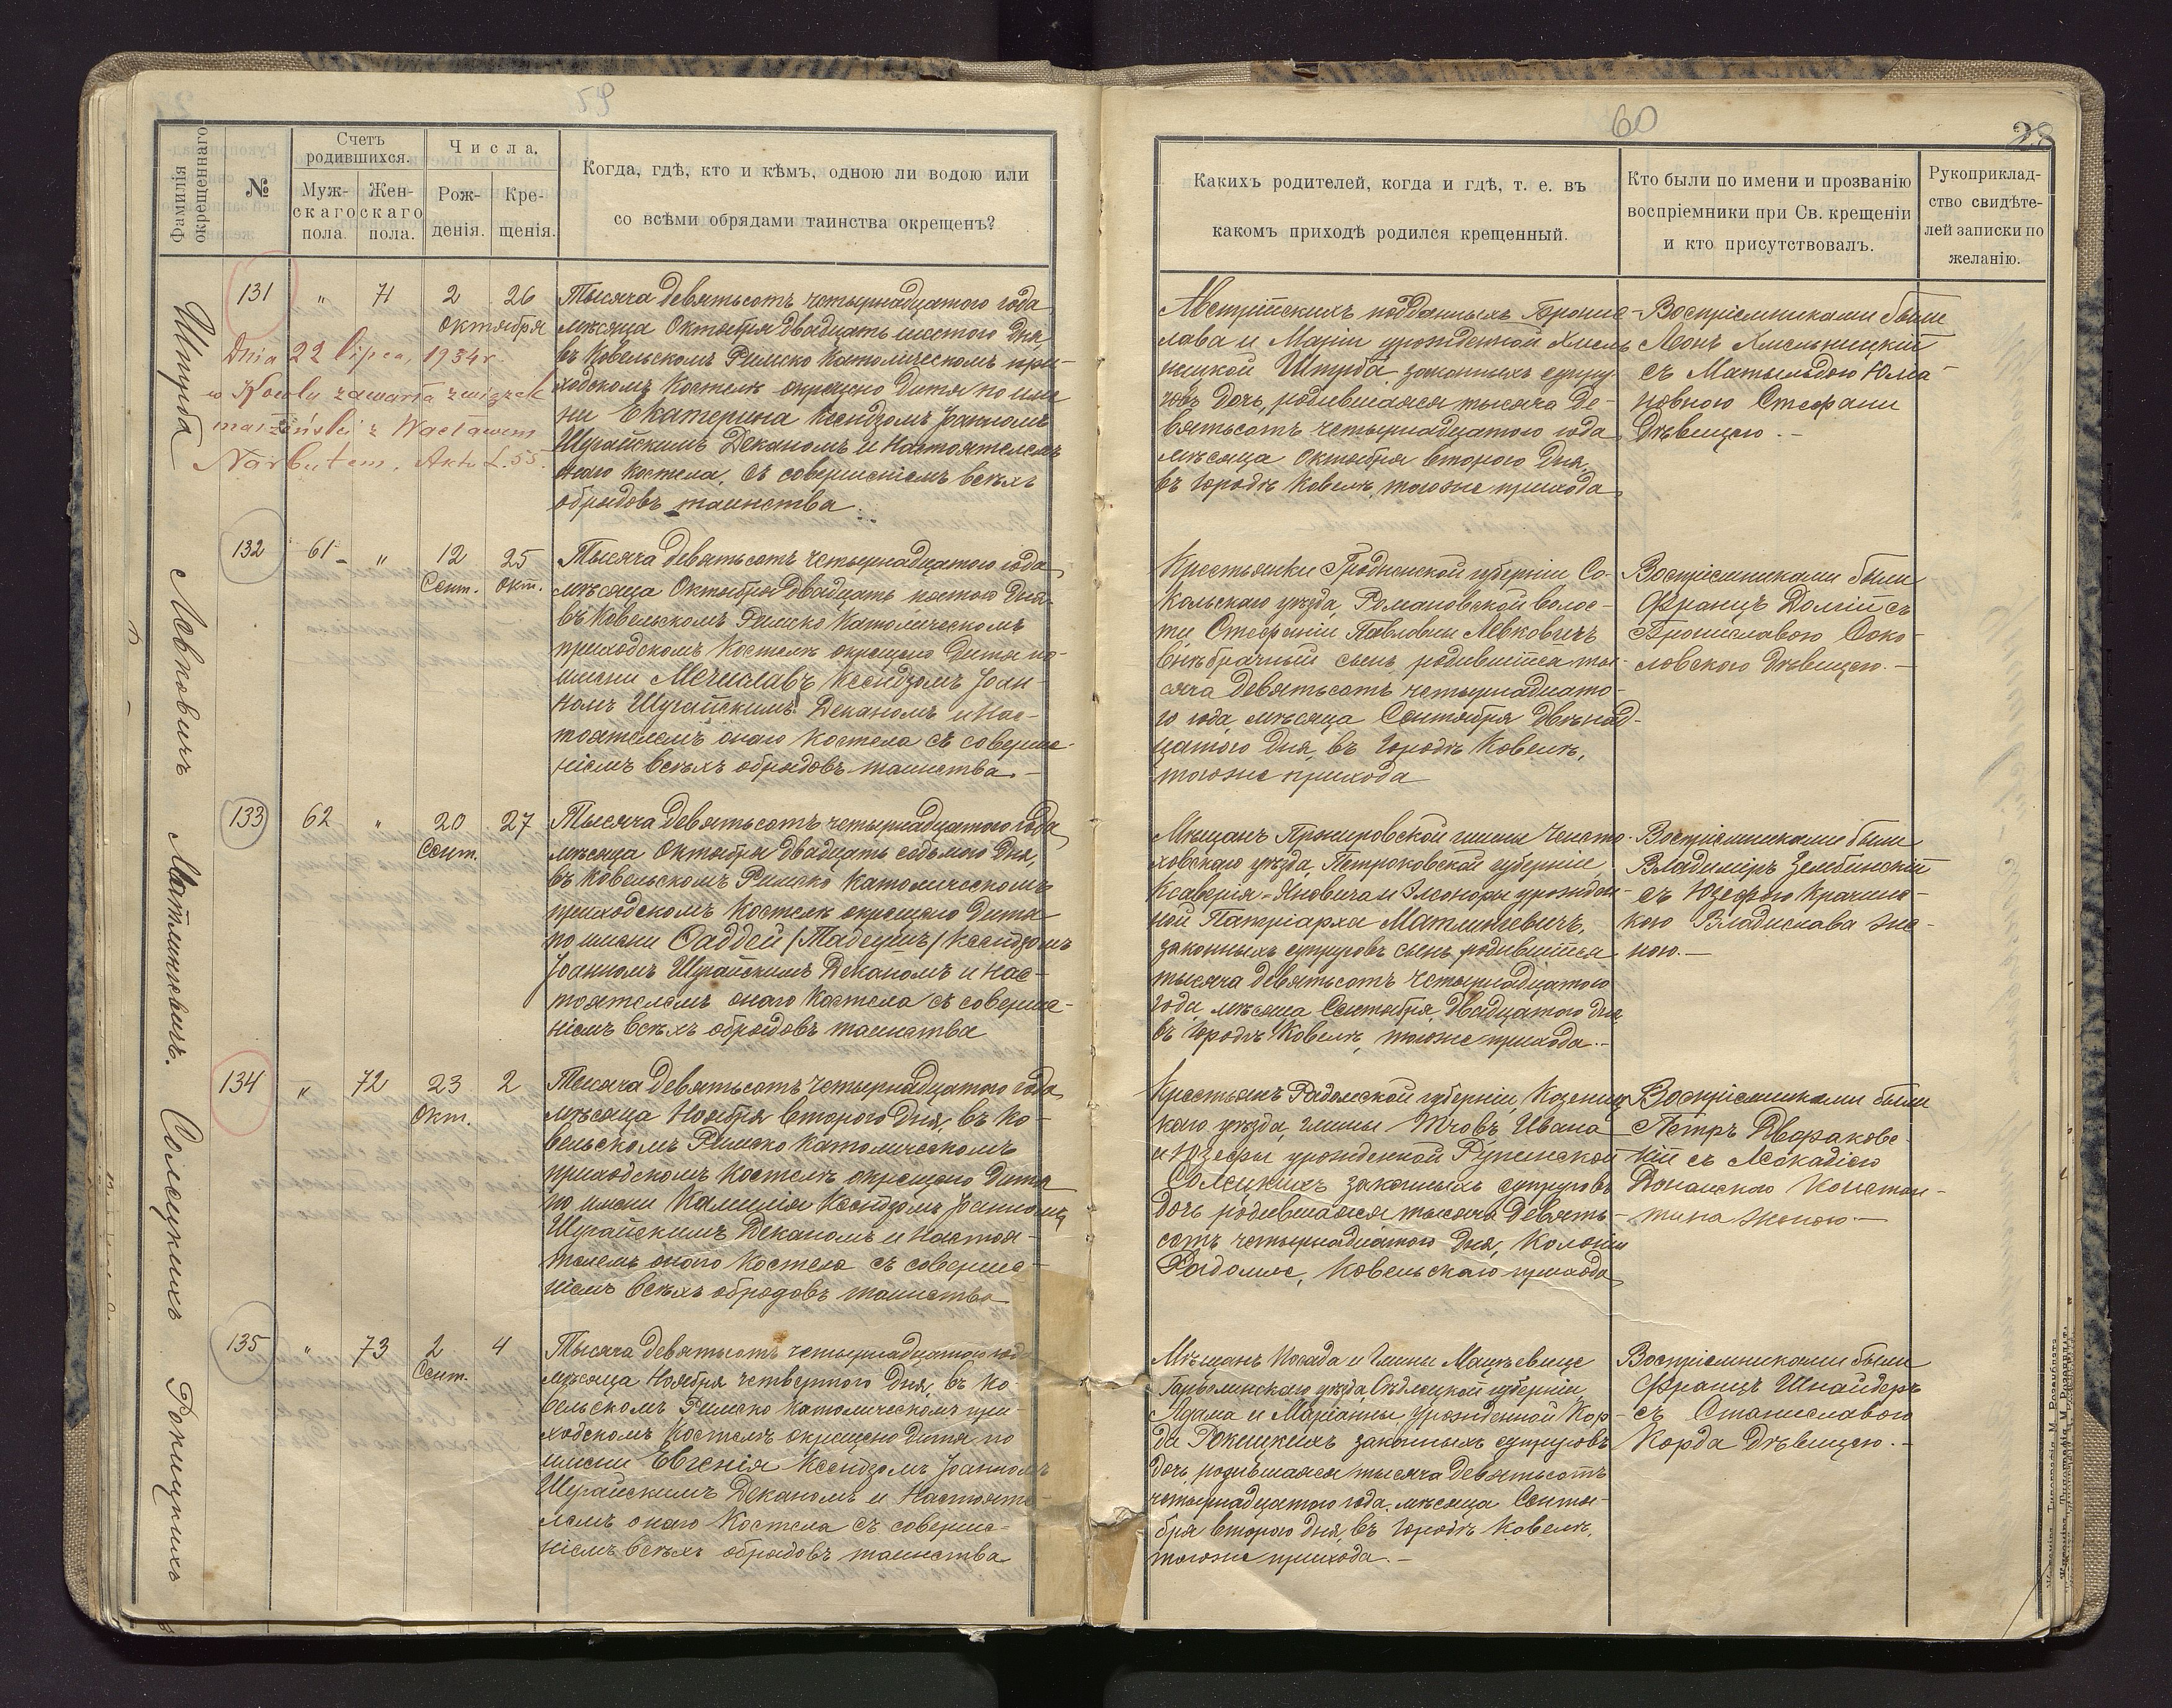 59
Фамилія окрещеннаго
№
Счетъ родившихся.
Мужскаго пола.
Женскаго пола.
Числа.
Рожденія.
Крещенія.
Когда, гдѣ, кто и кѣмъ, одною ли водою или
со всѣми обрядами таинства окрещенъ?
Штурба
131
"
71
2
26
Октября
Dnia 22 lipca, 1934 r.
w Kowlu zawarła związek
małżeński z Wacławem
Narbutem, Akt L. 55.
Тысяча девятьсотъ четырнадцатого года
мѣсяца Октября двадцать шестого дня
въ Ковельскомъ Римско Католическомъ при-
ходскомъ Костелѣ окрещено дитя по име
ни Екатерина Ксендзомъ Іоанномъ
Шуйскимъ Деканомъ и Настоятелемъ
онаго костела, съ совершеніемъ всѣхъ
обрядовъ таинства.
Левковичъ
132
61-
"
12
Сент.
25
Окт.
Тысяча девятьсотъ четырнадцатого года
мѣсяца Октября двадцать пятого дня
въ Ковельскомъ Римско Католическомъ
приходскомъ Костелѣ окрещено дитя по
имени Мечиславъ Ксендзомъ Іоан-
номъ Деканомъ и Нас-
тоятелемъ онаго Костела съ соверше-
ніемъ всѣхъ обрядовъ таинства.-
Матлинкевичъ.
133
62
"
20
Сент.
27
Тысяча девятьсотъ четырнадцатого года
мѣсяца Октября двадцать седьмого дня,
въ Ковельскомъ Римско Католическомъ
приходскомъ Костелѣ окрещено дитя
по имени Фаддей /Тадеушъ/ Ксендзомъ
Іоанномъ Деканомъ и Нас-
тоятелемъ онаго Костела съ соверше-
ніемъ всѣхъ обрядовъ таинства
Солецкихъ
134
"
72
23
Окт.
2
Тысяча девятьсотъ четырнадцатого года
мѣсяца Ноября второго дня, въ Ко-
вельскомъ Римско Католическомъ
приходскомъ Костелѣ окрещено дитя
по имени Камилія Ксендзомъ Іоанномъ
Деканомъ и Настоя-
телемъ онаго Костела съ соверше-
ніемъ всѣхъ обрядовъ таинства
Рокицкихъ
135
"
73
2
Сент.
4
Тысяча девятьсотъ четырнадцатого года
мѣсяца Ноября четвертого дня, въ Ко-
вельскомъ Римско Католическомъ при-
ходскомъ Костелѣ окрещено дитя по
имени Евгенія Ксендзомъ Іоанномъ
Деканомъ и Настояте-
лемъ онаго Костела съ соверше-
ніемъ всѣхъ обрядовъ таинства
60
28
Какихъ родителей, когда и гдѣ, т. е. въ
какомъ приходѣ родился крещенный.
Кто были по имени и прозванію
воспріемники при Св. крещеніи
и кто присутствовалъ.
Рукоприклад-
ство свидѣте-
лей записки по
желанію.
Австрійскихъ подданныхъ Брони-
слава и Маріи урожденной Хмель
ницкой Штурба, законныхъ супру-
говъ дочь, родившаяся тысяча де-
вятьсотъ четырнадцатого года
мѣсяца Октября второго дня,
въ городѣ Ковелѣ, тогоже прихода
Воспріемниками были
Леонъ Хмельницкій
съ Матыльдою
Стефани
дѣвицею.-
Крестьянки Гродненской губерніи Со-
кольскаго уѣзда, Романовской волос-
ти Стефаніи Павловны Левковичъ
внѣбрачный сынъ, родившійся ты-
сяча девятьсотъ четырнадцато-
го года мѣсяца Сентября двѣнад-
цатого дня, въ городѣ Ковелѣ,
тогоже прихода
Воспріемниками были
Францъ Долгій съ
Брониславою Соко-
ловскою дѣвицею.-
Мѣщанъ гмины Често-
ховскаго уѣзда, Петроковской губерніи
Ксаверія-Яновича и Элеоноры урожден-
ной Патріарха Матлинкевичъ,
законныхъ супруговъ сынъ родившійся
тысяча девятьсотъ четырнадцатого
года, мѣсяца Сентября, двадцатого дня
въ городѣ Ковелѣ, тогоже прихода.-
Воспріемниками были
Владиміръ Зембинскій
съ Юзефою
кою Владислава же-
ною.-
Крестьянъ Радомской губерніи, Козениц
каго уѣзда, гмины Ивана
и Юзефы урожденной
Солецкихъ законныхъ супруговъ
дочь родившаяся тысяча девять-
сотъ четырнадцатого дня, Колоніи
Радомле, Ковельскаго прихода
Воспріемниками были
Петръ Двораковс-
кій съ Леокадіею
Констан-
тина женою.-
Мѣщанъ посада и гмины Мацѣевице
Гарволинскаго уѣзда, Сѣдлецкой губерніи
Адама и Маріанны, урожденной Кор-
да Рокицкихъ законныхъ супруговъ
дочь, родившаяся тысяча девятьсотъ
четырнадцатого года, мѣсяца Сентя-
бря второго дня, въ городѣ Ковелѣ,
тогоже прихода.-
Воспріемниками были
Францъ Шнайдеръ
съ Станиславою
Корда дѣвицею.-